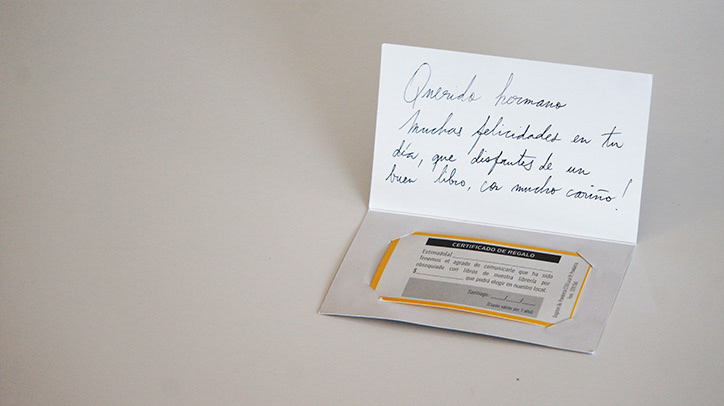 Querido hermano
Muchas felicidades en tu
día, que disfrutes de un
buen libro, con mucho cariño!
CERTIFICADO DE REGALO
Estimado(a)
tenemos el agrado de comunicarle que ha sido
obsequiado con libros de nuestra librería por
$ que podrá elegir en nuestro local.
Santiago, / /
(Cupón válido por 1 año)